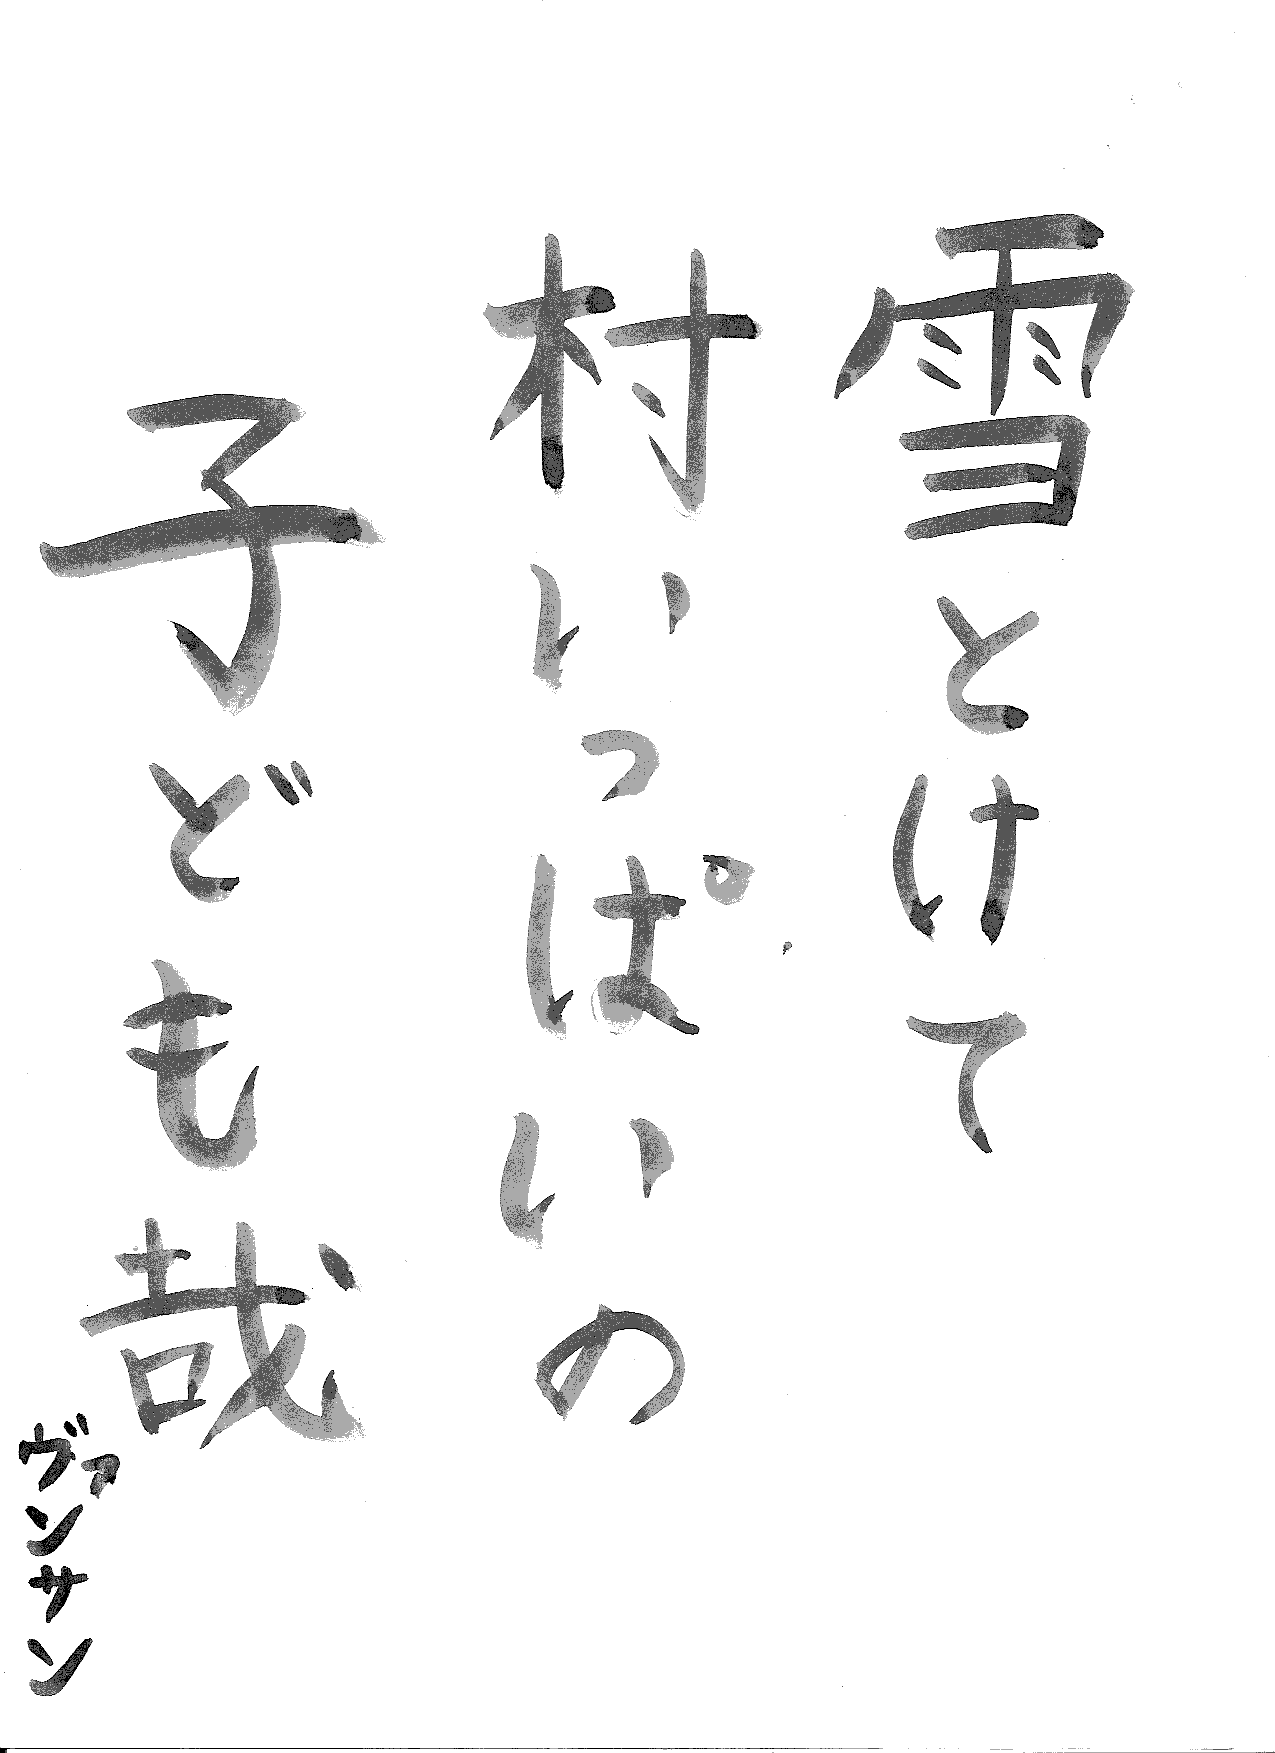 雪とけて
村いっぱいの
子ども哉
ヴァンサン